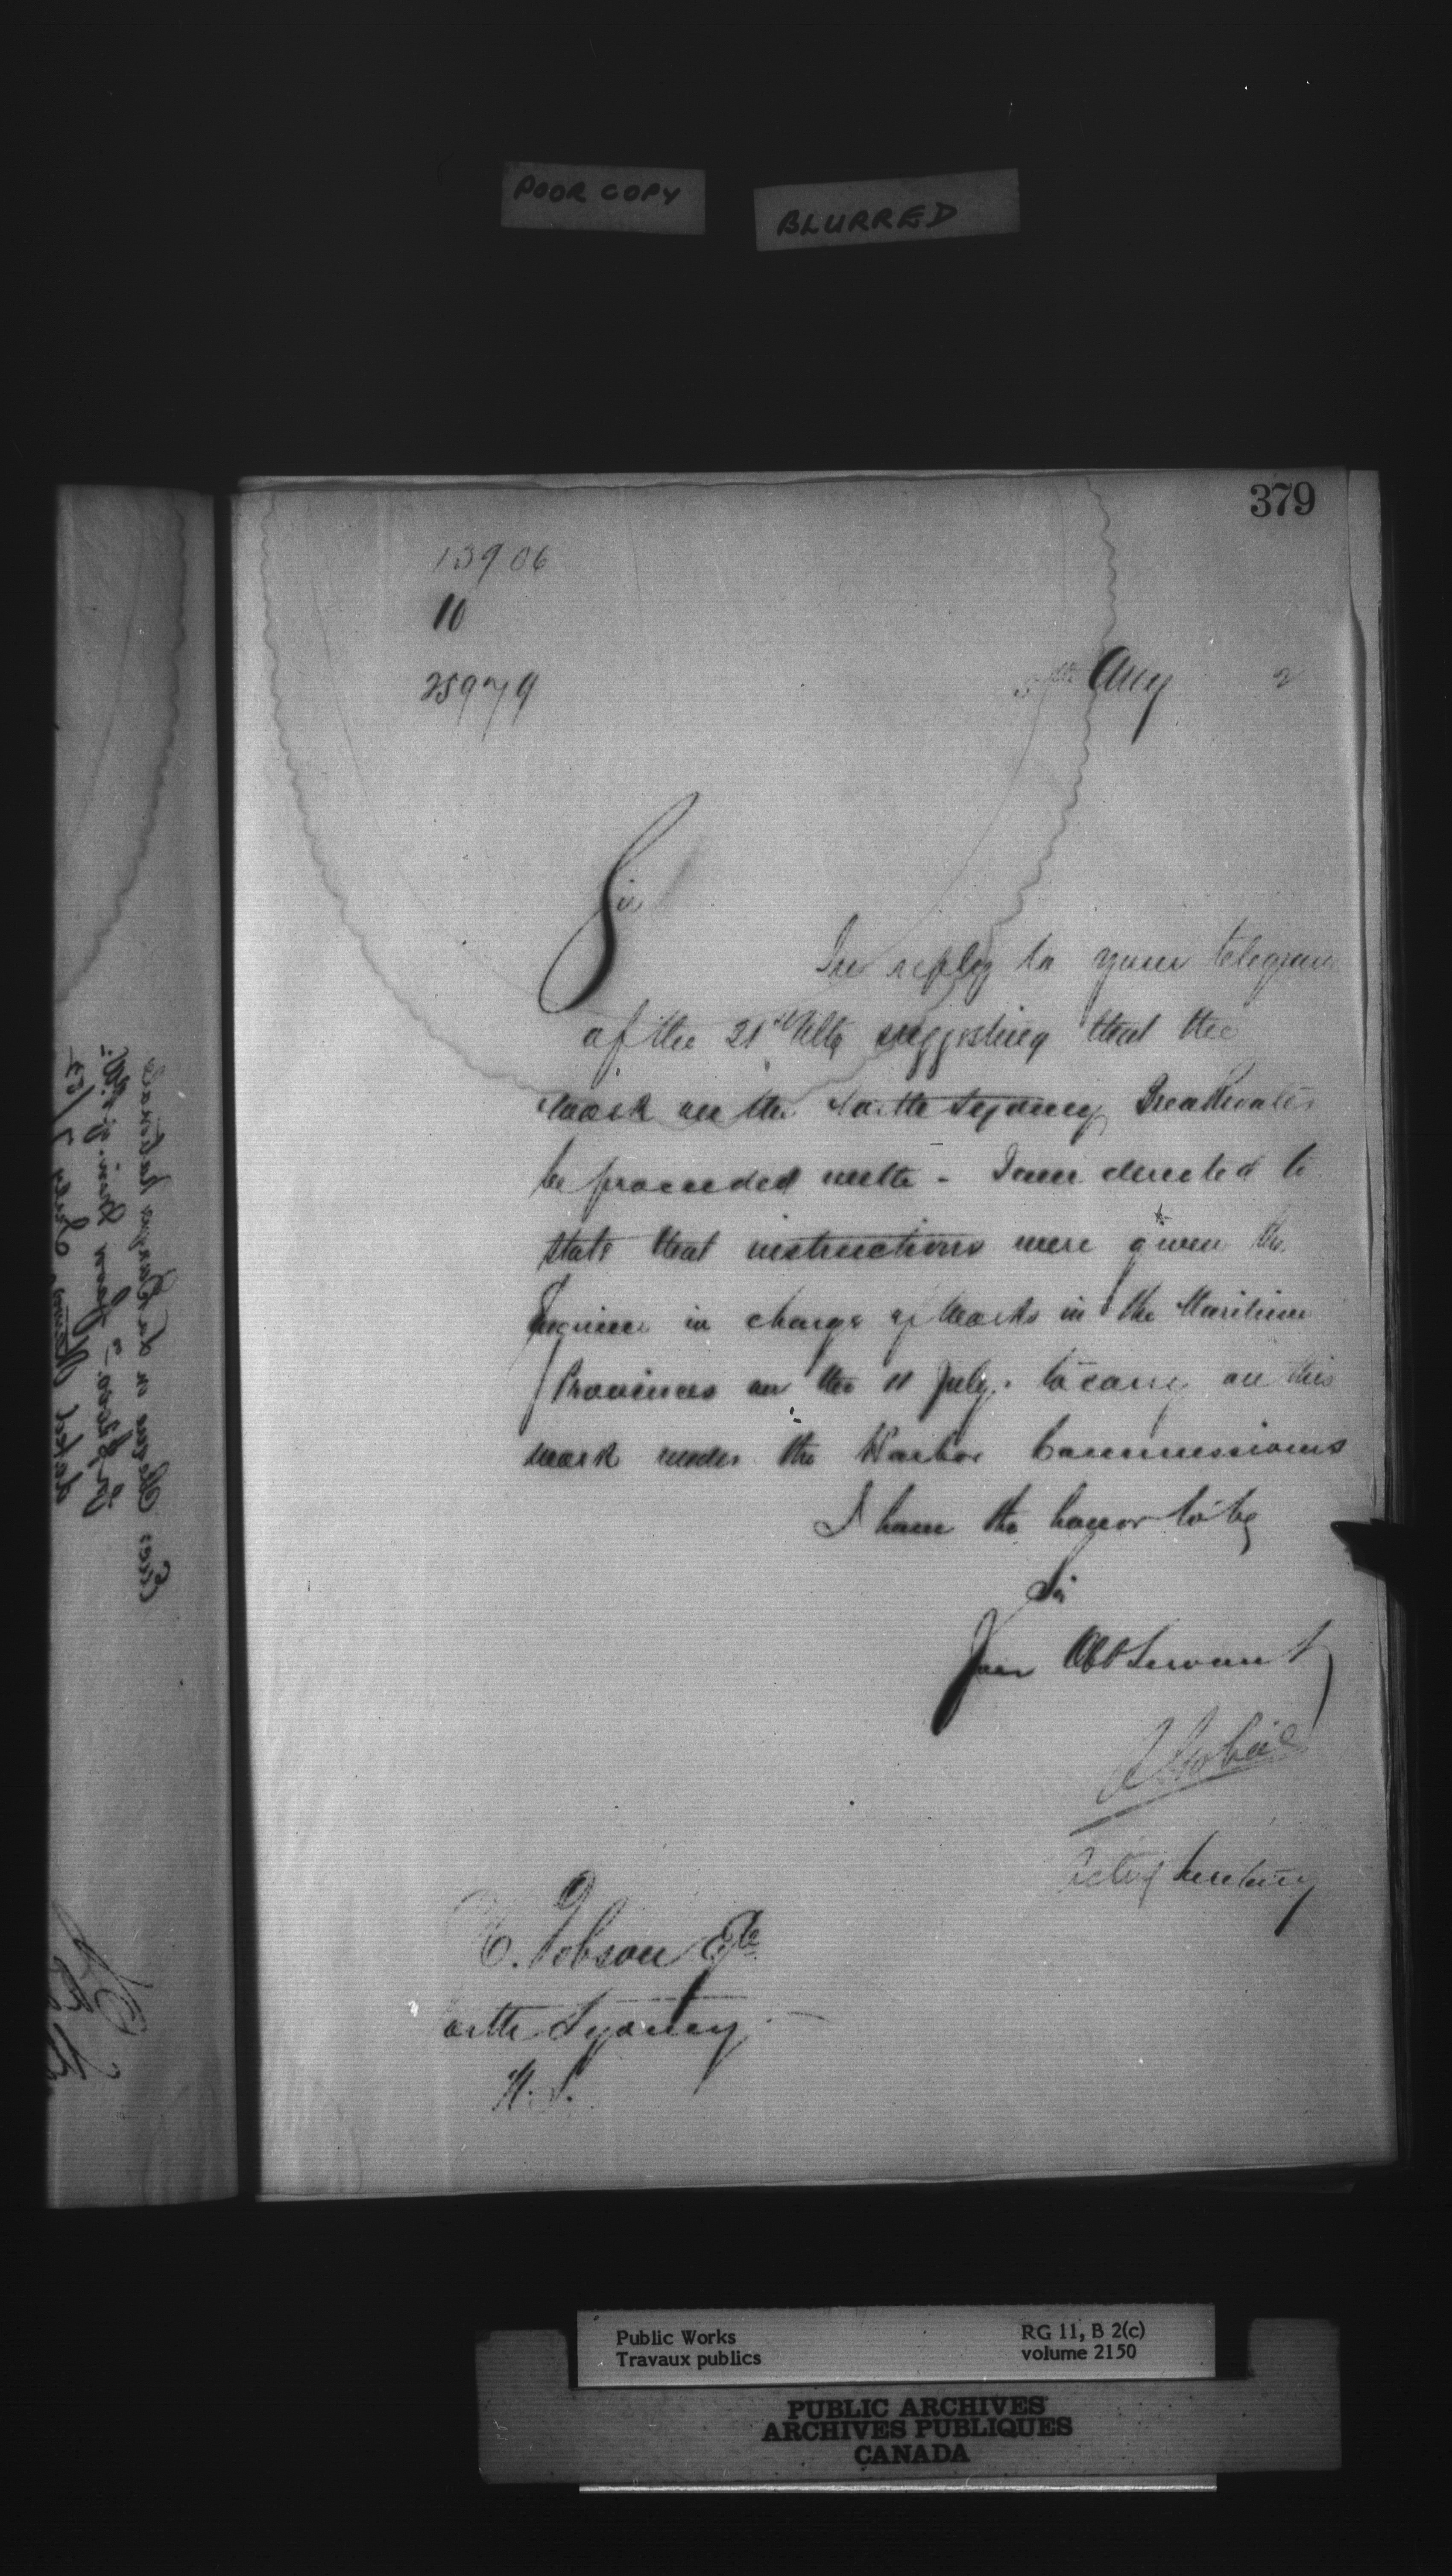 POOR COPY
BLURRED
379
13906
10
25979
5th Aug 2
Sir
In reply to your telegram
of the 21st Ulto suggesting that the
work on the North Sydney Breakwater
be proceeded with - I am directed to
state that instructions were given the
Engineer in charge of Works in the Maritime
Provinces on the 11 July. to carry on this
work under the Harbor Commissioners
I have the honor to be
Sir
Your Obt Servant
A Gobeil
Acting Secretary
Dobson
North Sydney
N. S.
Public Works
Travaux publics
RG 11, B 2(c)
volume 2150
PUBLIC ARCHIVES
ARCHIVES PUBLIQUES
CANADA